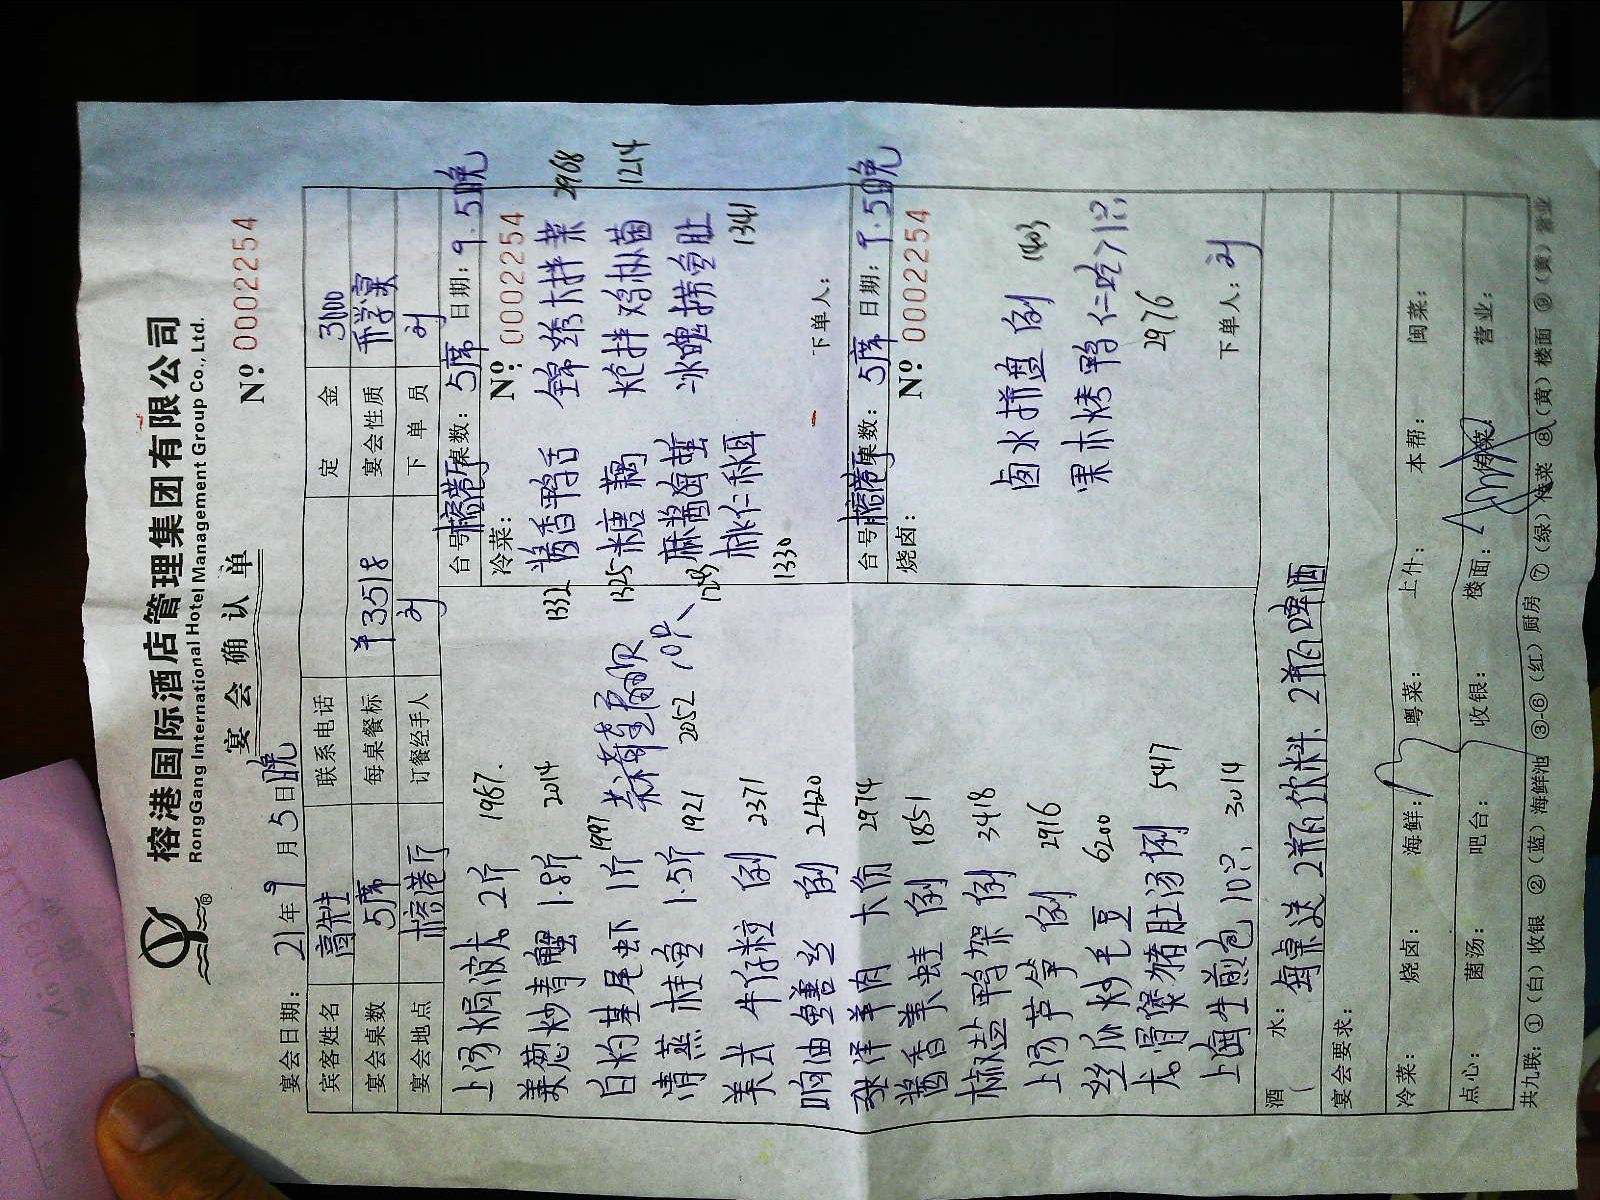 榕港国际酒店管理集团有限公司
RongGang International Hotel Management Group Co., Ltd.
宴会确认单
宴会日期: 21年9月5日晚 Nº: 0002254
宾客姓名 高先生 联系电话 定金 3000
宴会桌数 5席 每桌餐标 ¥3518 宴会性质 升学宴
宴会地点 榕港厅 订餐经手人 刘 下单员 刘
上汤焗波龙 2斤 1967.
姜葱炒青蟹 1.8斤 2014
白灼基尾虾 1斤 1997
蒜蓉扇贝 10只 2052
清蒸桂鱼 1.5斤 1921
美式牛仔粒 例 2371
响油鳝丝 例 2420
张泽羊肉 大份 2974
酱香美蛙 例 1851
椒盐鸭架 例 3418
上汤芦笋 例 2916
丝瓜炒毛豆 6200
龙骨煲猪肚汤例 5417
上海生煎包10只 3014
台号: 榕港厅 桌数: 5席 日期: 9.5晚
冷菜: Nº: 0002254
酱香鸭舌 1332 锦绣大拌菜 2968
糖藕 1325 炝拌鸡枞菌 1214
麻酱 1283 冰 捞鱼肚 1341
桃仁秋耳 1330
下单人:
台号: 榕港厅 桌数: 5席 日期: 9.5晚
烧卤: Nº: 0002254
卤水拼盘 例 1403
果木烤鸭 仁吃 1只 2976
下单人: 刘
酒水: 每桌送2瓶饮料、2瓶啤酒
宴会要求:
冷菜: 烧卤: 海鲜: 粤菜: 上什: 本帮: 闽菜:
点心: 菌汤: 吧台: 收银: 楼面: 传菜: 营业:
共九联: ①(白)收银 ②(蓝)海鲜池 ③-⑥(红)厨房 ⑦(绿)传菜 ⑧(黄)楼面 ⑨(黄)营业